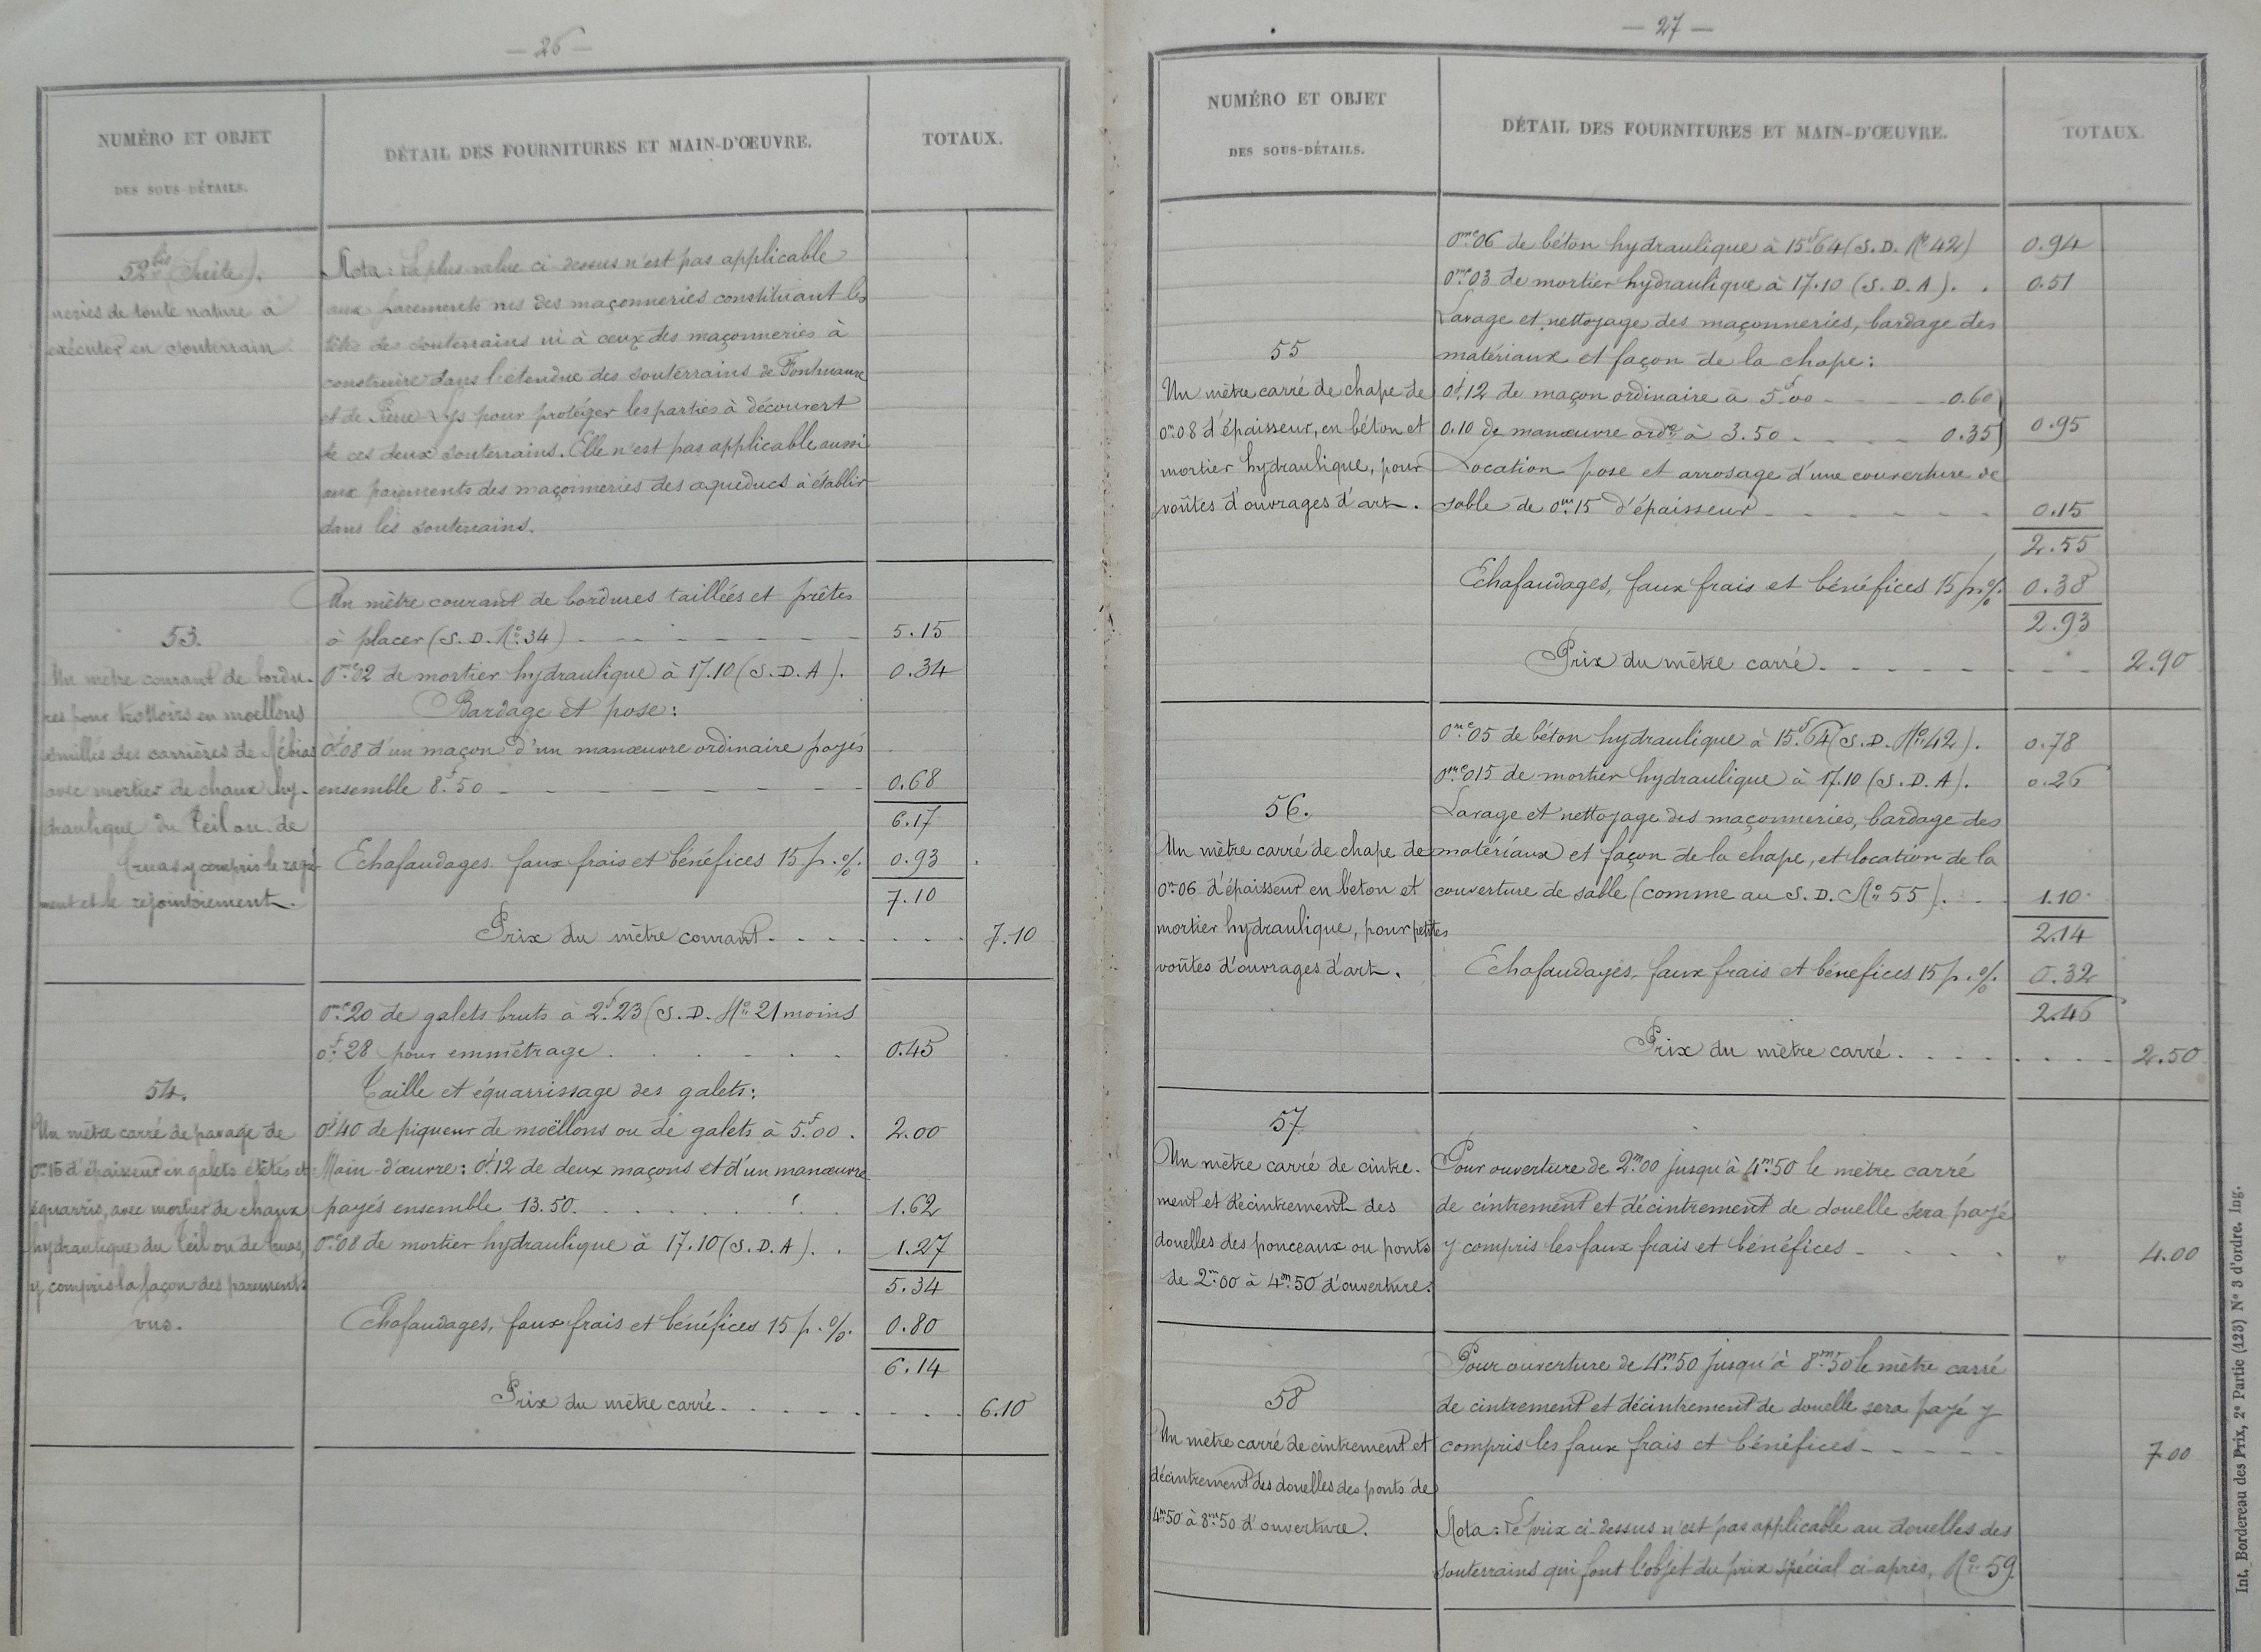 — 26 —
NUMÉRO ET OBJET
DES SOUS-DÉTAILS.
DÉTAIL DES FOURNITURES ET MAIN-D'ŒUVRE.
TOTAUX.
52 bis (Suite).
neries de toute nature à
exécuter en souterrain.
Nota: La plus-value ci-dessus n'est pas applicable
aux parements vus des maçonneries constituant les
têtes des souterrains ni à ceux des maçonneries à
construire dans l'étendue des souterrains de Fontmaure
et de Pierre-Lys pour protéger les parties à découvert
de ces deux souterrains. Elle n'est pas applicable aussi
aux parements des maçonneries des aqueducs à établir
dans les souterrains.
53.
Un mètre courant de bordu-
res pour trottoirs en moellons
smillés des carrières de Nébias
avec mortier de chaux hy-
draulique du Teil ou de
Cruas y compris le ragré-
ment et le rejointoiement.
Un mètre courant de bordures taillées et prêtes
à placer (S. D. No. 34) 5.15
0mc02 de mortier hydraulique à 17.10 (S. D. A). 0.34
Bardage et pose:
0j.08 d'un maçon d'un manœuvre ordinaire payés
ensemble 8f.50 0.68
6.17
Echafaudages faux frais et bénéfices 15 p. %. 0.93
7.10
Prix du mètre courant. . . . 7.10
54.
Un mètre carré de pavage de
0m.15 d'épaisseur en galets étêtés et
équarris, avec mortier de chaux
hydraulique du Teil ou de Cruas,
y compris la façon des parements
vus.
0mc20 de galets bruts à 2f.23 (S. D. No 21 moins
0f.28 pour emmétrage. 0.45
Taille et équarrissage des galets:
0j.40 de piqueur de moëllons ou de galets à 5f.00. 2.00
Main-d'œuvre: 0j.12 de deux maçons et d'un manœuvre
payés ensemble 13.50. 1.62
0mc08 de mortier hydraulique à 17.10 (S. D. A). 1.27
5.34
Echafaudages, faux frais et bénéfices 15 p. %. 0.80
6.14
Prix du mètre carré. . . . 6.10
— 27 —
NUMÉRO ET OBJET
DES SOUS-DÉTAILS.
DÉTAIL DES FOURNITURES ET MAIN-D'ŒUVRE.
TOTAUX.
55
Un mètre carré de chape de
0m.08 d'épaisseur, en béton et
mortier hydraulique, pour
voûtes d'ouvrages d'art.
0mc06 de béton hydraulique à 15f64 (S. D. No 42) 0.94
0mc03 de mortier hydraulique à 17.10 (S. D. A). 0.51
Lavage et nettoyage des maçonneries, bardage des
matériaux et façon de la chape:
0j.12 de maçon ordinaire à 5f.00 0.60
0.10 de manœuvre ordre à 3.50 0.35 0.95
Location pose et arrosage d'une couverture de
sable de 0m.15 d'épaisseur 0.15
2.55
Echafaudages, faux frais et bénéfices 15 p. %. 0.38
2.93
Prix du mètre carré. . . . 2.90
56.
Un mètre carré de chape de
0m06 d'épaisseur en béton et
mortier hydraulique, pour petites
voûtes d'ouvrages d'art.
0mc05 de béton hydraulique à 15f.64 (S. D. No 42). 0.78
0mc015 de mortier hydraulique à 17.10 (S. D. A). 0.26
Lavage et nettoyage des maçonneries, bardage des
matériaux et façon de la chape, et location de la
couverture de sable (comme au S. D. No 55). 1.10
2.14
Echafaudages, faux frais et bénéfices 15 p. %. 0.32
2.46
Prix du mètre carré. . . . 2.50
57
Un mètre carré de cintre-
ment et décintrement des
douelles des ponceaux ou ponts
de 2m.00 à 4m.50 d'ouverture.
Pour ouverture de 2m00 jusqu'à 4m.50 le mètre carré
de cintrement et décintrement de douelle sera payé
y compris les faux frais et bénéfices " 4.00
58
Un mètre carré de cintrement et
décintrement des douelles des ponts de
4m50 à 8m.50 d'ouverture.
Pour ouverture de 4m.50 jusqu'à 8m.50 le mètre carré
de cintrement et décintrement de douelle sera payé y
compris les faux frais et bénéfices 7.00
Nota: Le prix ci-dessus n'est pas applicable au douelles des
souterrains qui font l'objet du prix spécial ci-après, No 59.
Int. Bordereau des Prix, 2e Partie (123) No 3 d'ordre. Ing.